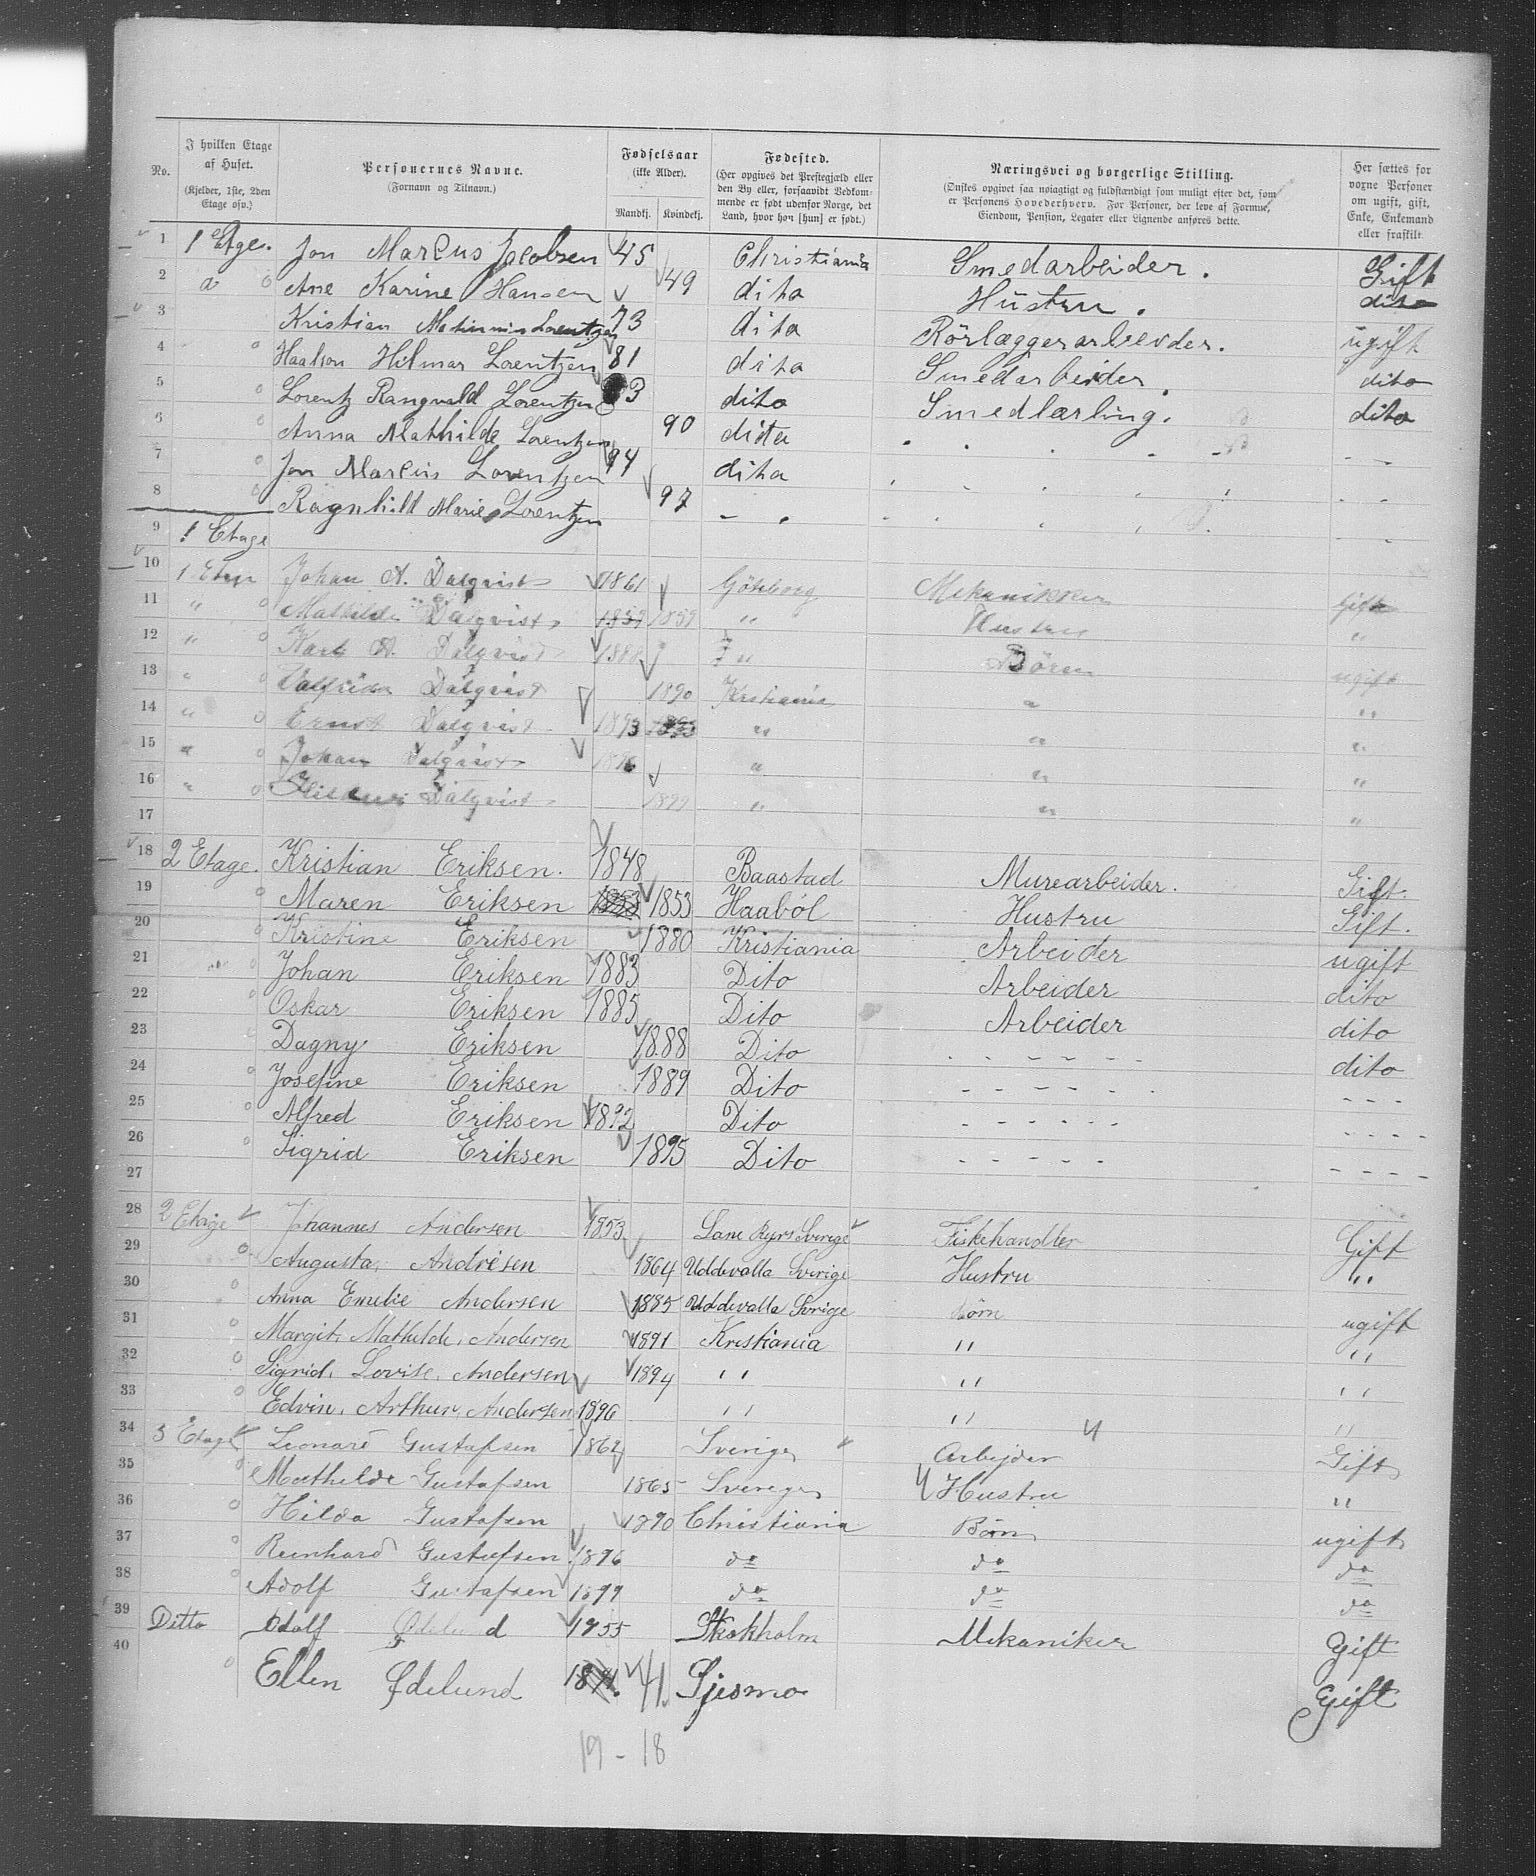 No. | I hvilken Etage af Huset. (Kjelder, 1ste, 2den Etage osv.) | Personernes Navne. (Fornavn og Tilnavn.) | Fødselsaar (ikke Alder). Mandkj. Kvindekj. | Fødested. (Her opgives det Prestegjæld eller den By eller, forsaavidt Vedkommende er født udenfor Norge, det Land, hvor han [hun] er født.) | Næringsvei og borgerlige Stilling. (Ønskes opgivet saa nøiagtigt og fuldstændigt som muligt efter det, som er Personens Hovederhverv. For Personer, der leve af Formue, Eiendom, Pension, Legater eller Lignende anføres dette. | Her sættes for voxne Personer om ugift, gift, Enke, Enkemand eller fraskilt.
1 1 Etage. Jon Marcus Jacobsen 45 Christiania Smedarbeider. Gift
2 d Ane Karine Hansen 49 dito Hustru. dito
3 Kristian Lorentzen 73 dito Rörlæggerarbeider. ugift
4 Haakon Hilmar Lorentzen 81 dito Smedarbeider dito
5 Lorentz Rangvald Lorentzen 83 dito Smedlærling. dito
6 Anna Mathilde Lorentzen 90 dito
7 Jon Marcus Lorentzen 94 dito
8 Ragnhild Marie Lorentzen 97 - .
9 1 Etage
10 1 Etage Johan A. Dalqvist 1861 Göteborg Mekanikker Gift
11 " Mathilde Dalqvist 1859 1859 " Hustru "
12 " Karl A. Dalqvist 1888 " Börn ugift
13 " Valfrida Dalqvist 1890 Kristiania " "
14 " Ernst Dalqvist 1893 1893 " " "
15 " Johan Dalqvist 1896 " " "
16 " Dalqvist 1899 " " "
17
18 2 Etage. Kristian Eriksen. 1848 Baastad Murearbeider. Gift.
19 Maren Eriksen 1853 1853 Haaböl Hustru Gift.
20 Kristine Eriksen 1880 Kristiania Arbeider ugift
21 Johan Eriksen 1883 Dito Arbeider dito
22 Oskar Eriksen 1885 Dito Arbeider dito
23 Dagny Eriksen 1888 Dito - - - - - - dito
24 Josefine Eriksen 1889 Dito - - - - - - - - -
25 Alfred Eriksen 1892 Dito - - - - - - - - - -
26 Sigrid Eriksen 1895 Dito - - - - - - - - -
27
28 2 Etage Johannes Andersen 1853 Lane Ryrs Sverige Fiskehandler Gift
29 Augusta Andresen 1864 Uddevalla Sverige Hustru "
30 Anna Emelie Andersen 1885 Uddevalla Sverige börn ugift
31 Margit Mathilde Andersen 1891 Kristiania " "
32 Sigrid. Lovise. Andersen 1894 " " "
33 Edvin. Arthur. Andersen 1896 " " "
34 3 Etage Leonard Gustafsen 1862 Sverige Arbejder Gift
35 Mathilde Gustafsen 1865 Sverege Hustru "
36 Hilda Gustafsen 1890 Christiania Børn ugift
37 Reinhard Gustafsen 1896 do do do
38 Adolf Gustafsen 1899 do do do
39 Ditto Adolf Ødelund 1855 Stokholm Mekaniker Gift
40 Ellen Ødelund 1841. 41. Sjesmo Gift
19 - 18